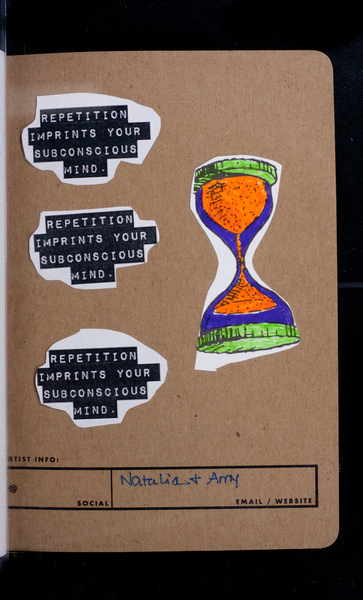 REPETITION
IMPRINTS YOUR
SUBCONSCIOUS
MIND.
REPETITION
IMPRINTS YOUR
SUBCONSCIOUS
MIND.
REPETITION
IMPRINTS YOUR
SUBCONSCIOUS
MIND.
RTIST INFO:
@
SOCIAL
Natalia + Amy
EMAIL / WEBSITE